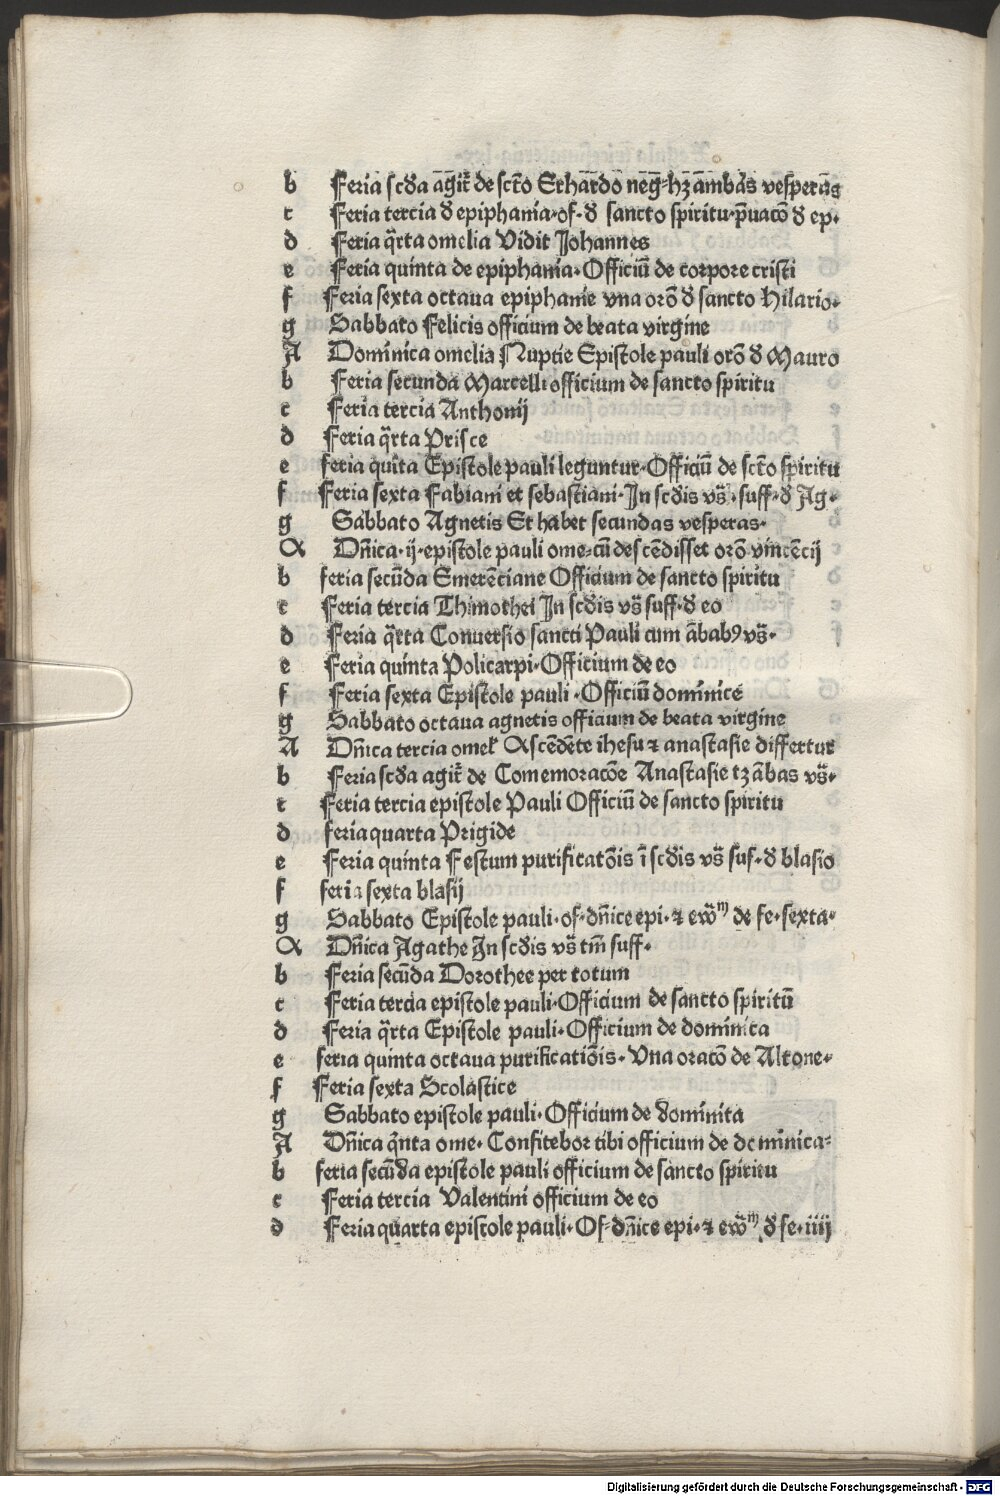 b Feria scd̄a āgit̄ de scto Erhardo neq̄ꝫ hꝫ ambas vesperas
c Feria tercia d̄ epiphania · of · d̄ sancto spiritu · p̄uacō d̄ ep ·
d Feria q̄rta omelia Vidit Johannes
e Feria quinta de epiphania · Officiū de corpore cristi
f Feria sexta octaua epiphanie vna orō d̄ sancto Hilario ·
g Sabbato Felicis officium de beata virgine
A Dominica omelia Nuptie Epistole pauli orō d̄ Mauro
b Feria secunda Marcelli officium de sancto spiritu
c Feria tercia Anthonij
d Feria q̄rta Prisce
e feria quīta Epistole pauli leguntur · Officiū de scto spiritu
f Feria sexta Fabiani et sebastiani · In scd̄is vs̄ · suff · d̄ Ag ·
g Sabbato Agnetis Et habet secundas vesperas ·
A Dn̄ica · ij · epistole pauli ome · cū descēdisset orō vincēcij
b feria secūda Emerēciane Officium de sancto spiritu
c Feria tercia Thimothei In scd̄is vs̄ suff · d̄ eo
d Feria q̄rta Conuersio sancti Pauli cum ābabꝯ vs̄ ·
e Feria quinta Policarpi · Officium de eo
f Feria sexta Epistole pauli · Officiū dominice
g Sabbato octaua agnetis officium de beata virgine
A Dn̄ica tercia omel̄ Ascēdēte ihesu ⁊ anastasie differtur
b Feria scd̄a agit̄ de Comemoracōe Anastasie tꝫ ābas vs̄ ·
c Feria tercia epistole Pauli Officiū de sancto spiritu
d feria quarta Prigide
e Feria quinta Festum purificatōis ī scd̄is vs̄ suf · d̄ blasio
f feria sexta blasij
g Sabbato Epistole pauli · of · dn̄ice epi · ⁊ ew̄ᵐ de fe · sexta ·
A Dn̄ica Agathe In scd̄is vs̄ tm̄ suff ·
b Feria secūda Dorothee per totum
c Feria tercia epistole pauli · Officium de sancto spiritū
d Feria q̄rta Epistole pauli · Officium de dominica
e feria quinta octaua purificatiōis · Vna oracō de Altone ·
f Feria sexta Scolastice
g Sabbato epistole pauli · Officium de dominica
A Dn̄ica q̄nta ome · Confitebor tibi officium de dominica ·
b feria secūda epistole pauli officium de sancto spiritu
c Feria tercia Valentini officium de eo
d Feria quarta epistole pauli · Of · dn̄ice epi · ⁊ ew̄ᵐ d̄ fe · iiij
Digitalisierung gefördert durch die Deutsche Forschungsgemeinschaft - DFG